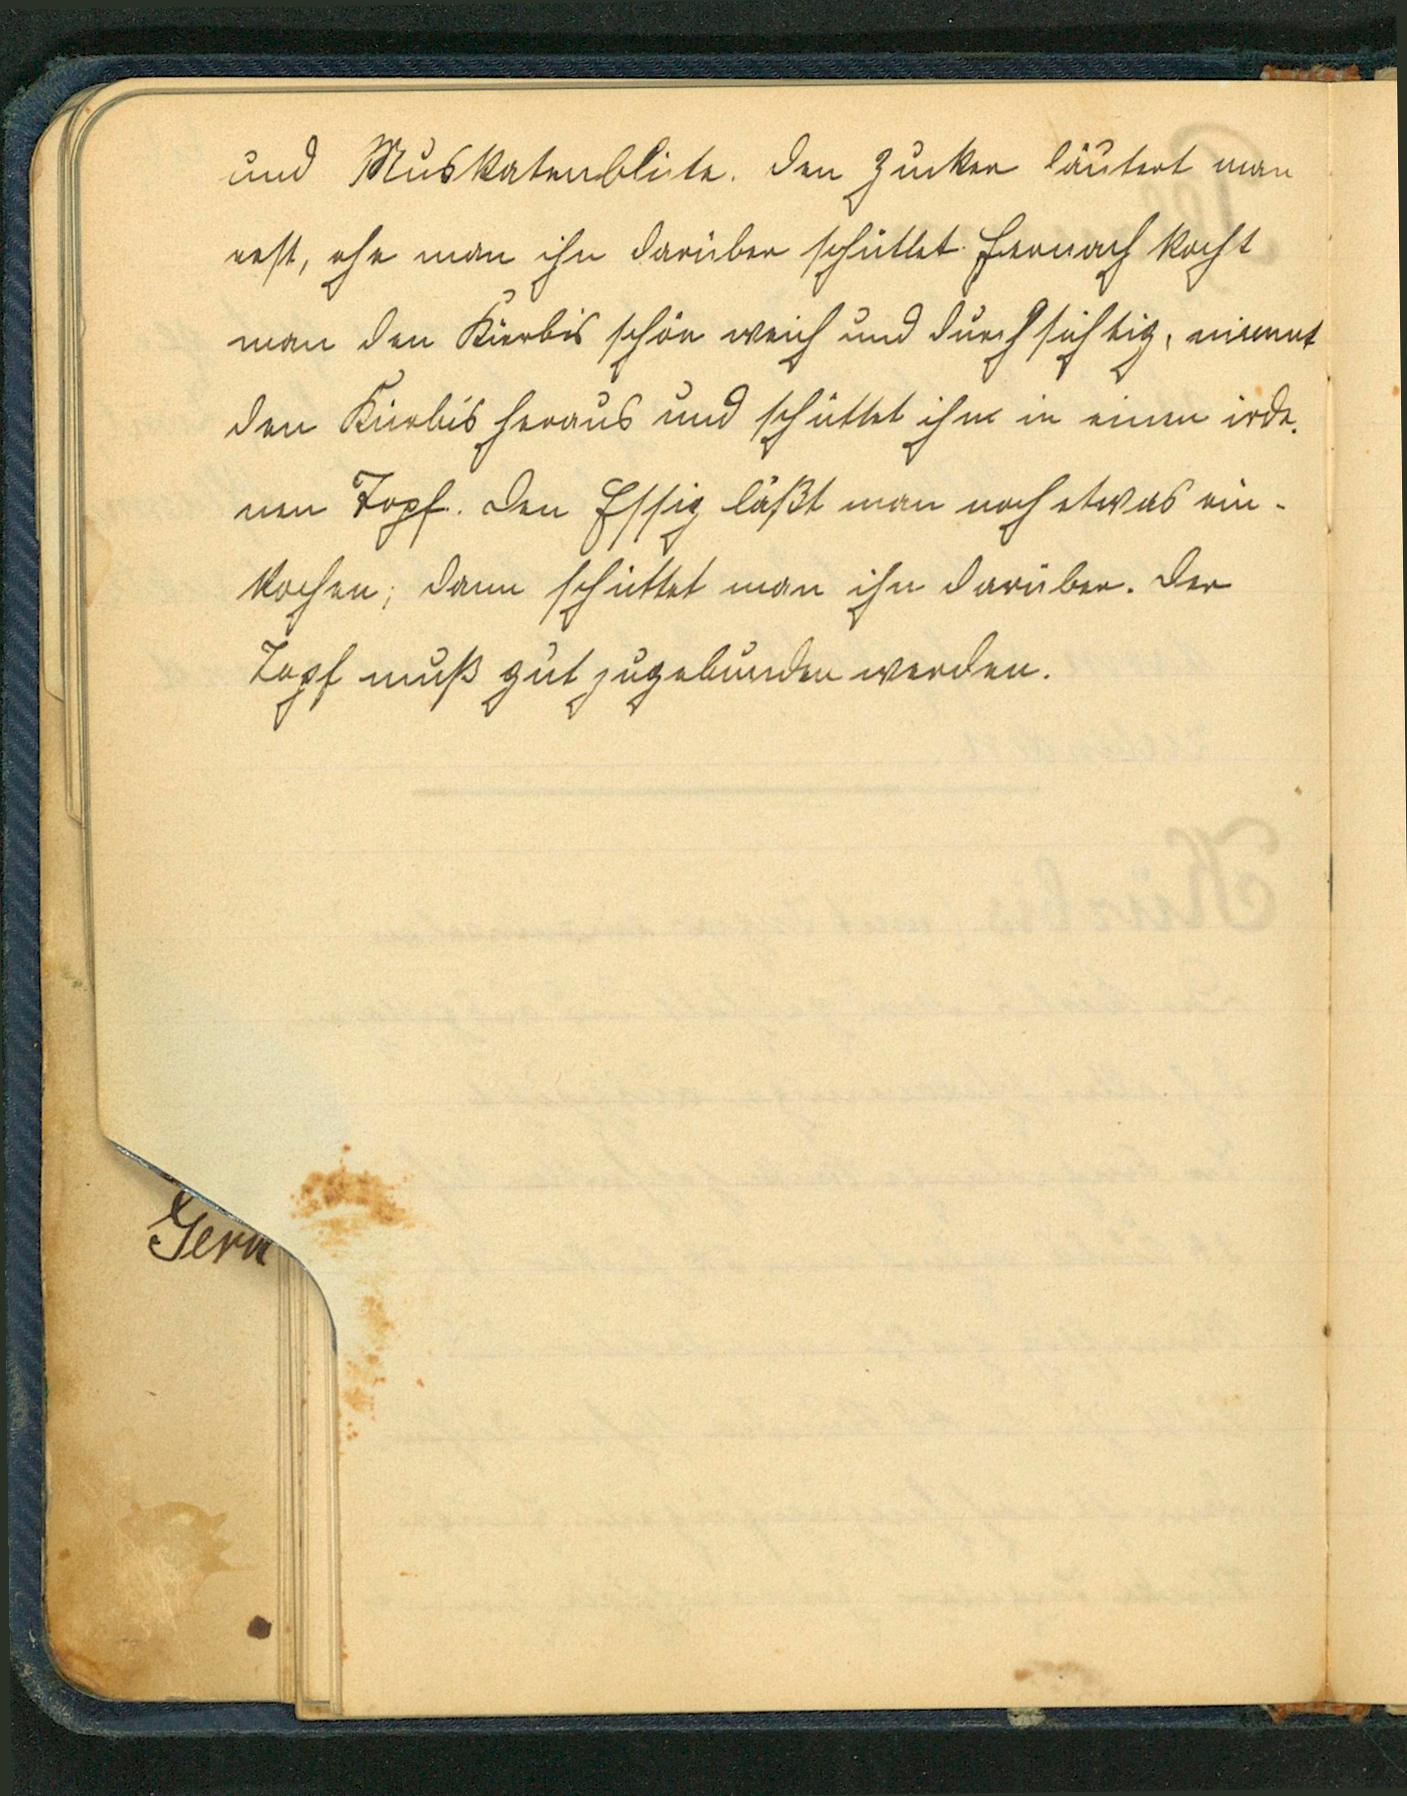 und Muskatenblüte. Den Zucker läutert man
erst, ehe man ihn darüber schüttet. Hernach kocht
man den Kürbis schön weich und durchsichtig, nimmt
den Kürbis heraus und schüttet ihn in einen irde-
nen Topf. Den Essig läßt man noch etwas ein-
kochen; dann schüttet man ihn darüber. Der
Topf muß gut zugebunden werden.
Gem